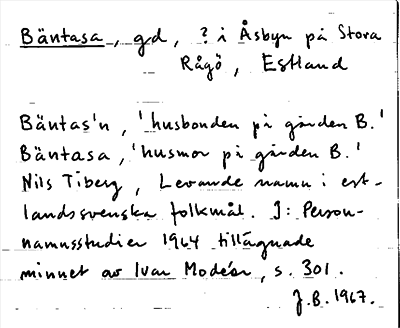 Bäntasa, gd, ? i Åsbyn på Stora
Rågö, Estland
Bäntas'n, 'husbonden på gården B.'
Bäntasa, 'husmor på gården B.'
Nils Tiberg, Levande namn i est-
landssvenska folkmål. I: Person-
namnsstudier 1964 tillägnade
minnet av Ivar Modéer, s. 301.
J.B. 1967.